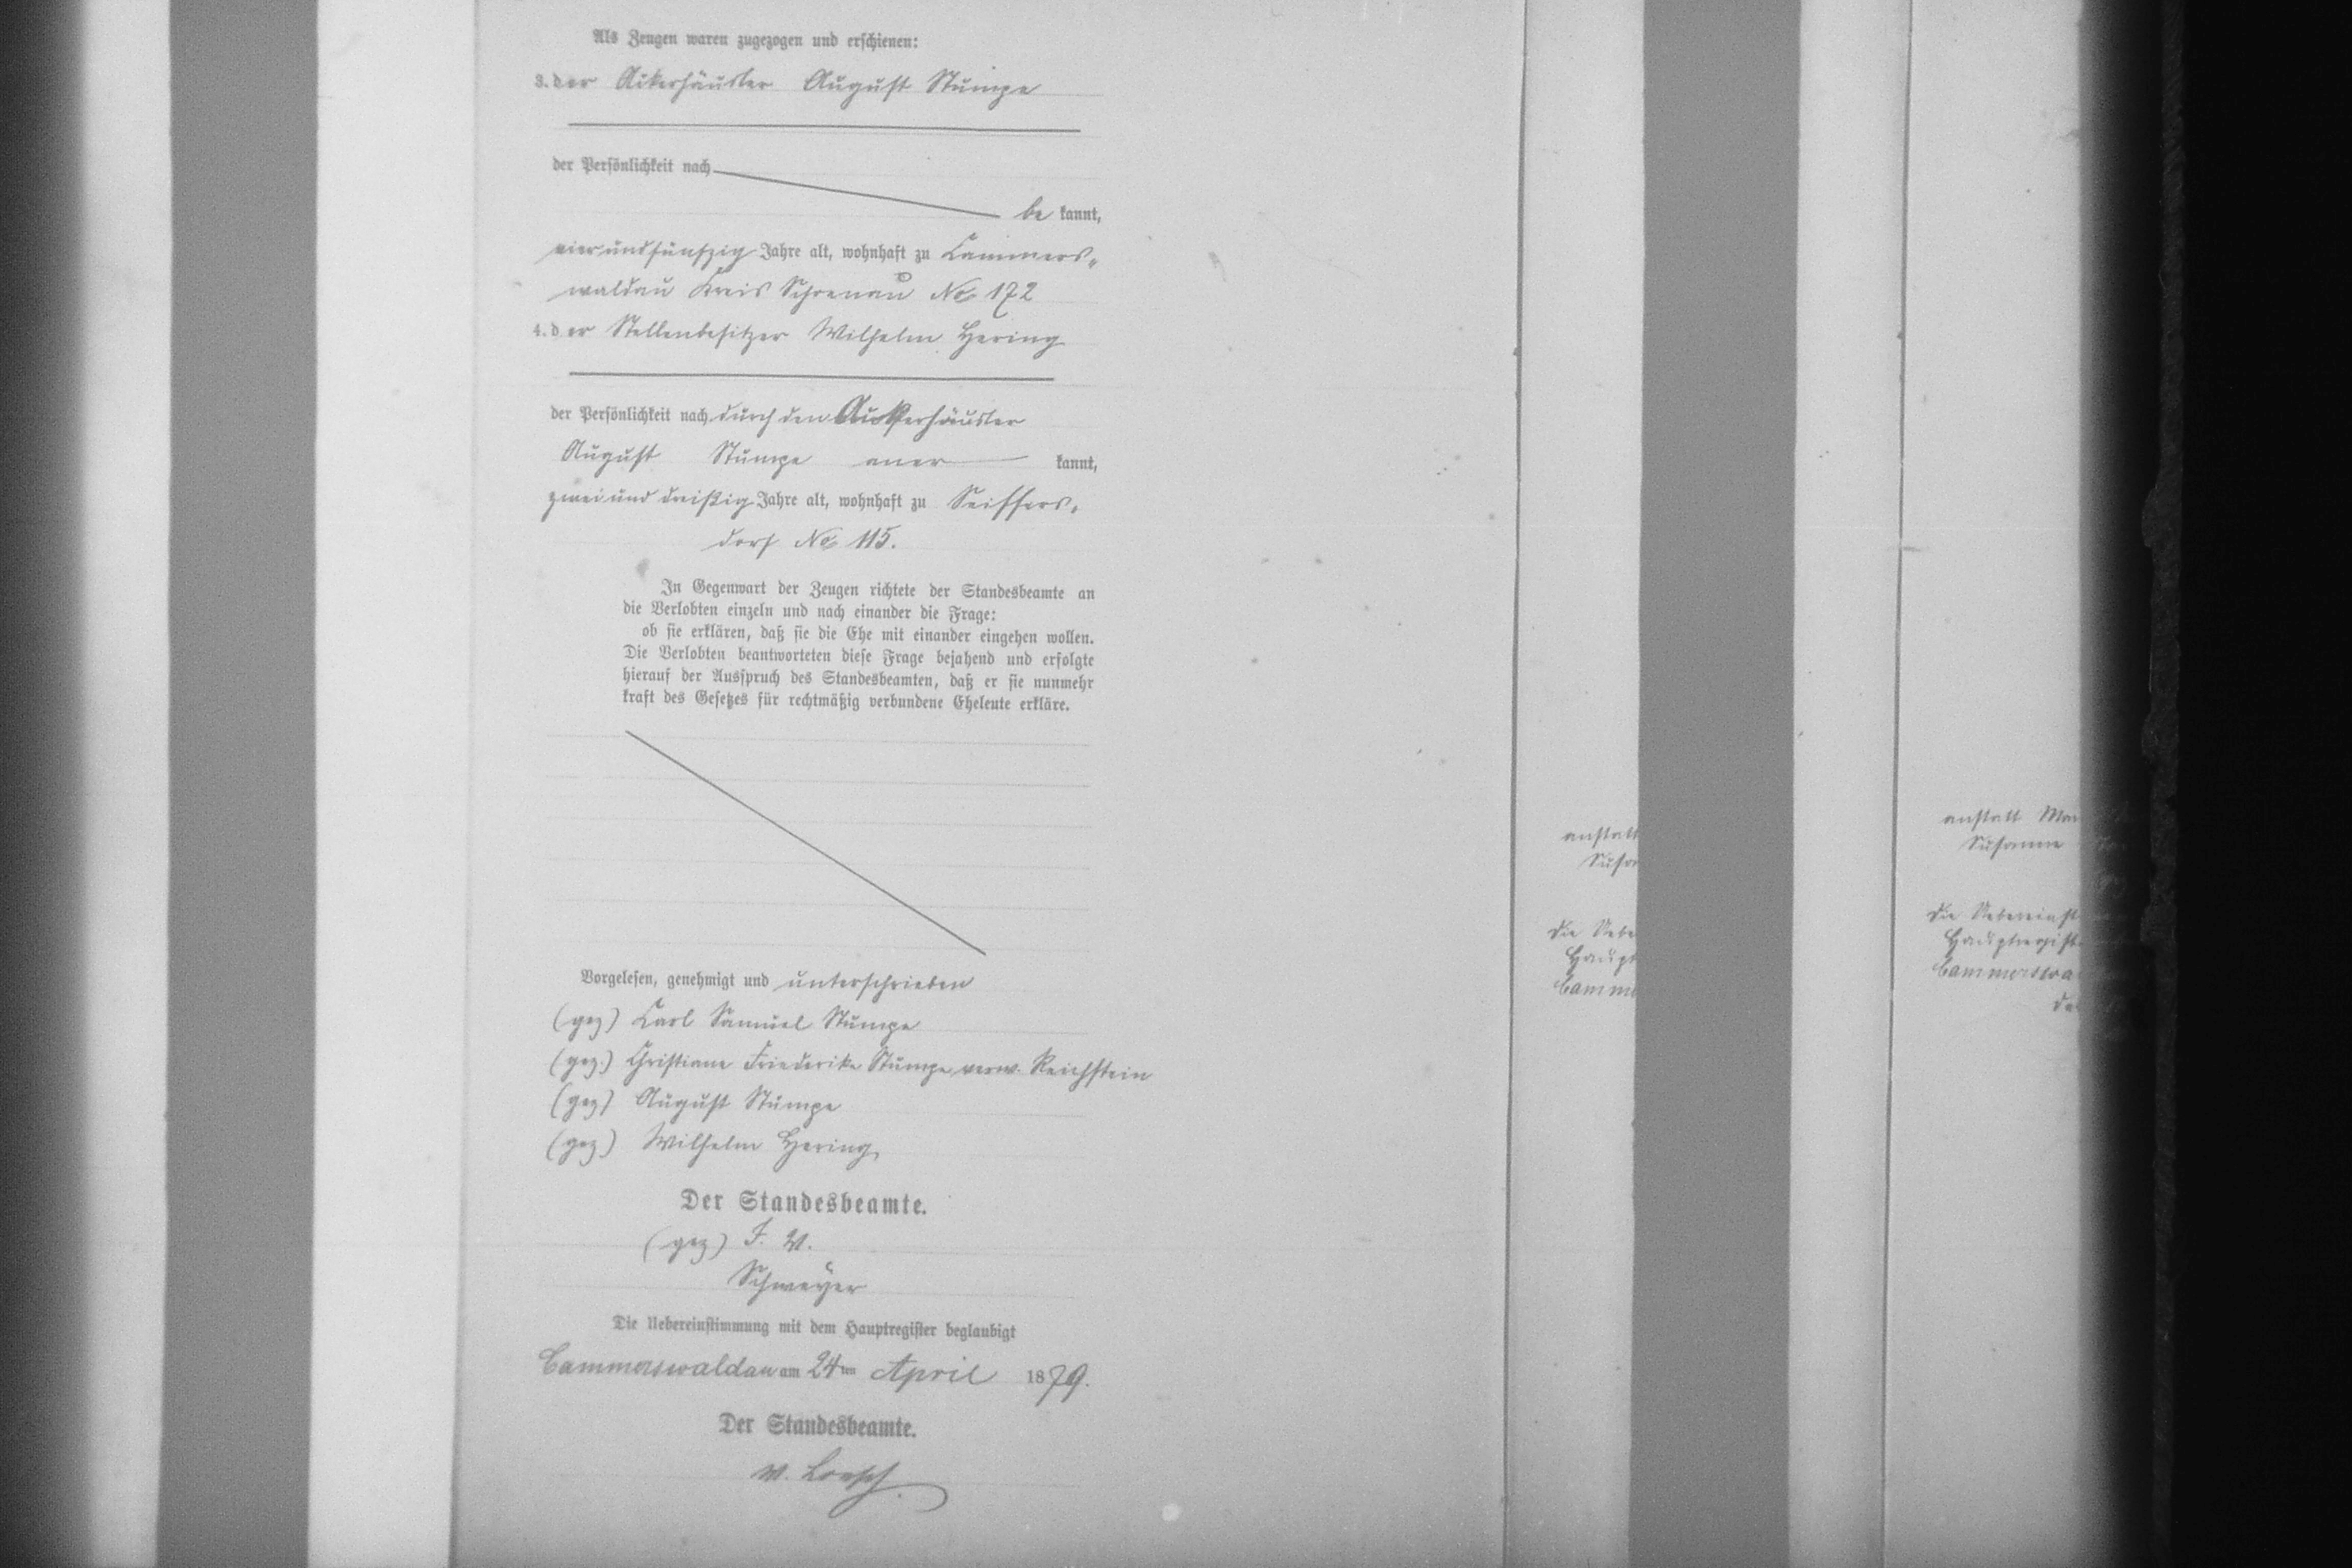 Als Zeugen waren zugezogen und erschienen:
3. der Ackerhäusler August Stumpe
der Persönlichkeit nach
be kannt,
vier und fünfzig Jahre alt, wohnhaft zu Cammers-
waldau Kreis Schoenau No 172
4. der Stellenbesitzer Wilhelm Hering
der Persönlichkeit nach durch den Ackerhäusler
August Stumpe aner kannt,
zwei und dreißig Jahre alt, wohnhaft zu Seiffers-
dorf No 115.
In Gegenwart der Zeugen richtete der Standesbeamte an
die Verlobten einzeln und nach einander die Frage:
ob sie erklären, daß sie die Ehe mit einander eingehen wollen.
Die Verlobten beantworteten diese Frage bejahend und erfolgte
hierauf der Ausspruch des Standesbeamten, daß er sie nunmehr
kraft des Gesetzes für rechtmäßig verbundene Eheleute erkläre.
Vorgelesen, genehmigt und unterschrieben
(gez) Carl Samuel Stumpe
(gez.) Christiane Friederike Stumpe verw. Reichstein
(gez) August Stumpe
(gez) Wilhelm Hering
Der Standesbeamte.
(gez) I. V.
Schweyer
Die Uebereinstimmung mit dem Hauptregister beglaubigt
Cammerswaldau am 24ten April 1879.
Der Standesbeamte.
anstatt
Susa
Die Uebe
Haupt
Camme
anstatt Mar
Susanne
Die Uebereinst
Hauptregist
Cammerswa